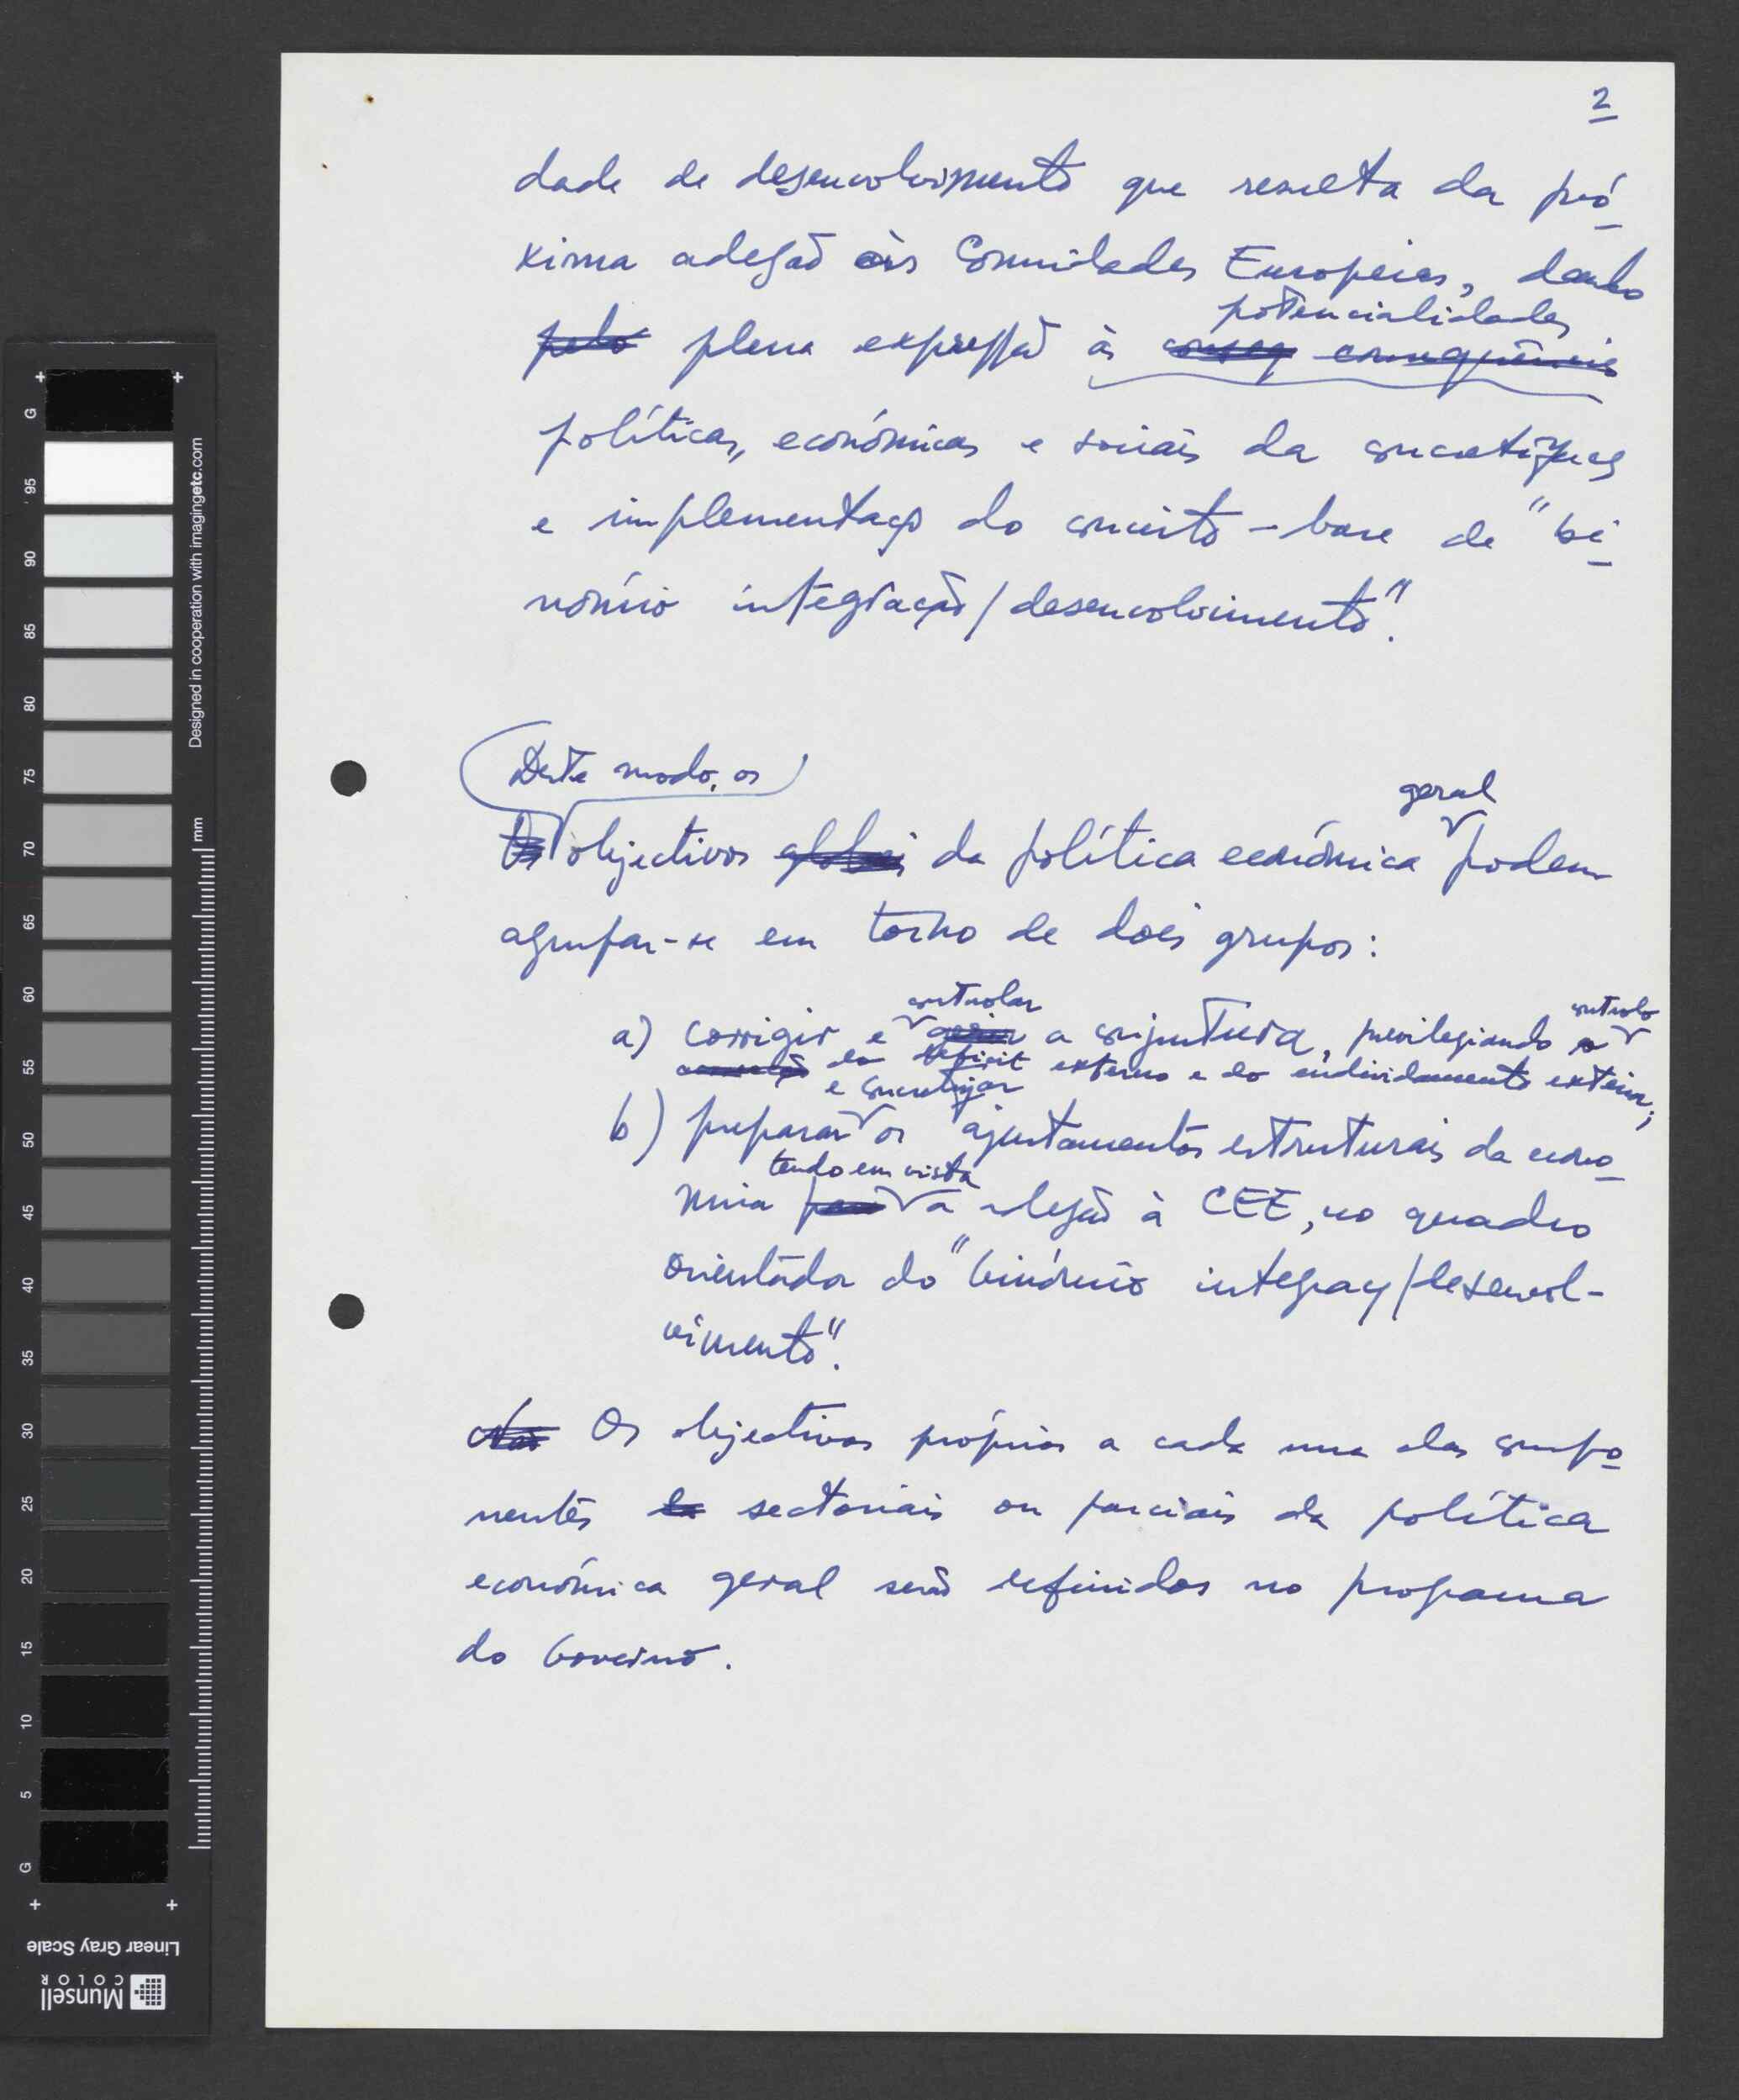 2
dade de desenvolvimento que resulta da pró-
xima adesão às Comunidades Europeias, dando
potencialidades
pelo plena expressão às conseq consequências
políticas, económicas e sociais da concretização
e implementação do conceito-base de "bi-
nómio integração/desenvolvimento".
Deste modo, os
geral
Os objectivos globais da política económica podem
agrupar-se em torno de dois grupos:
controlar
controlo
a) corrigir e gerir a conjuntura, privilegiando o
do deficit externo e do endividamento exterior;
e concretizar
b) preparar os ajustamentos estruturais da econo-
tendo em vista
mia para a adesão à CEE, no quadro
orientador do "binómio integração/desenvol-
vimento".
Não Os objectivos próprios a cada uma das compo-
nentes da sectoriais ou parciais da política
económica geral serão definidos no programa
do Governo.
G 95 90 85 80 75 70 65 60 55 50 45 40 35 30 25 20 15 10 5 G
Designed in cooperation with imagingetc.com
mm
Linear Gray Scale
Munsell
COLOR